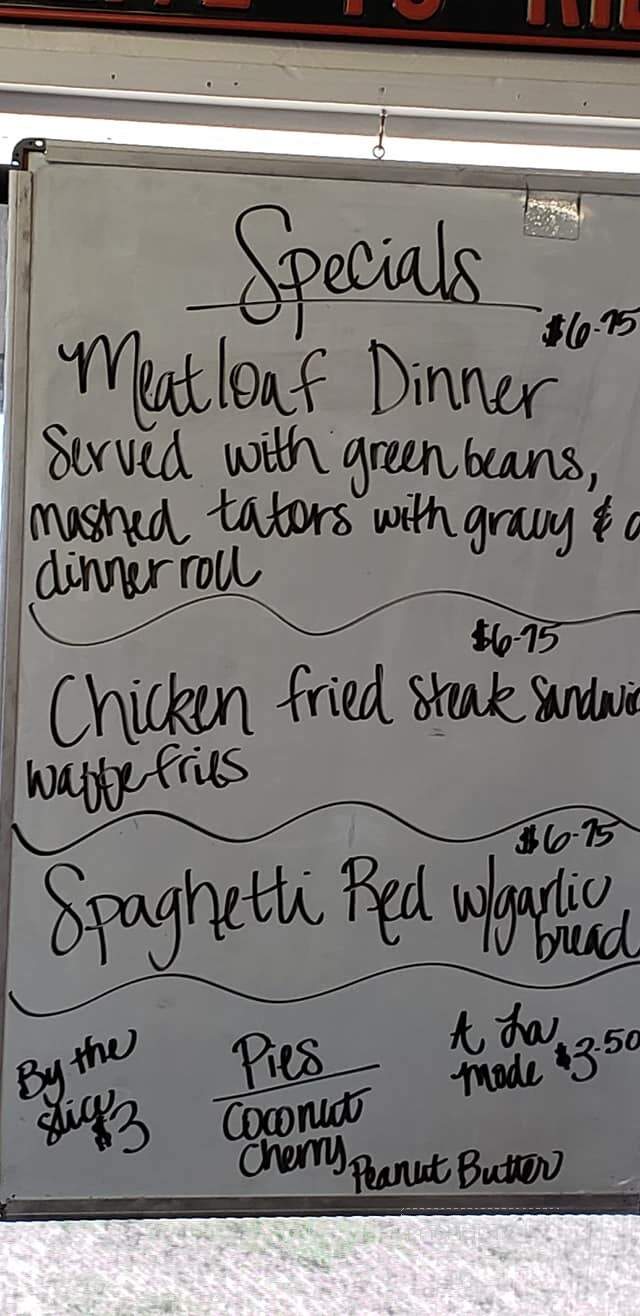 Specials
$6.75
Meatloaf Dinner
Served with green beans,
mashed tators with gravy & a
dinner roll
$6.75
Chicken fried steak Sandwic
waffle fries
$6.75
Spaghetti Red w/garlic
bread
By the
slice
$3
Pies
Coconut
Cherry
Peanut Butter
A La
mode $3.50